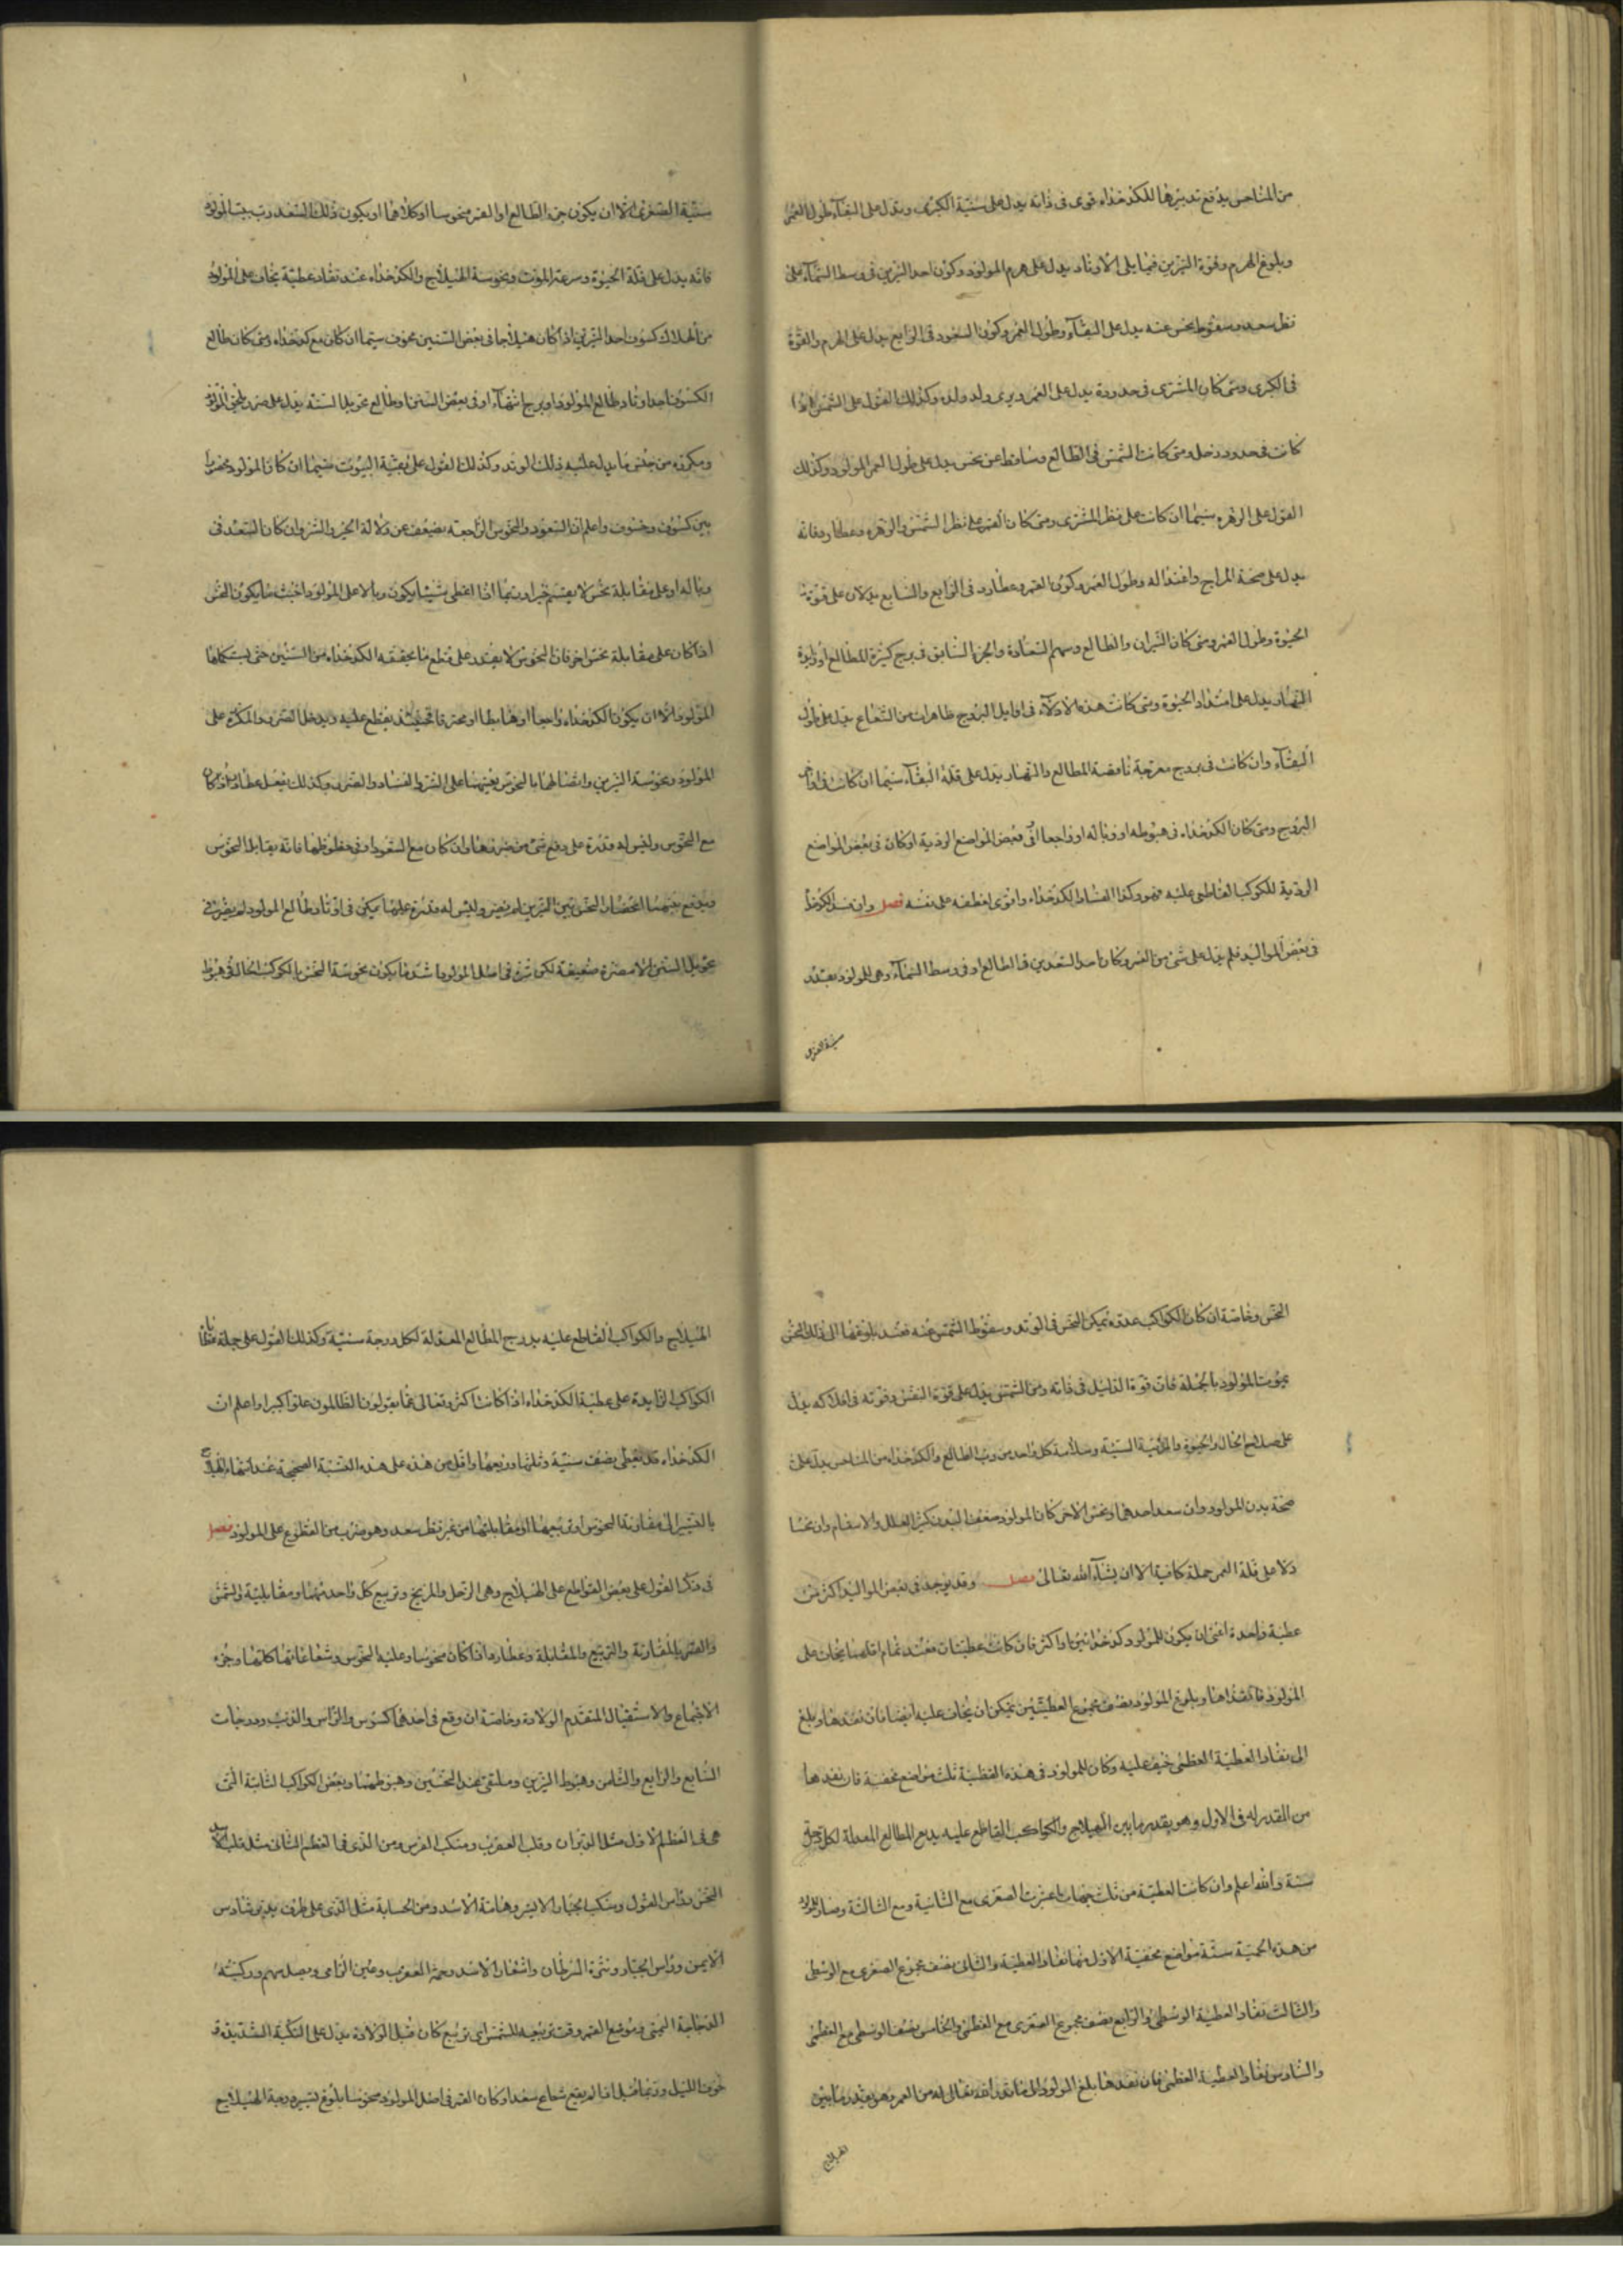 من المناحس يدفع تدبيرها للكدخداه قوى فى ذاته يدل على سنيّة الكبرى ويدل على البقآء وطول العمر
وبلوغ الهرم وقوة النيرين فيما يلى الاوتاد يدل على هرم المولود وكون احد النيرين فى وسط السّمآء على
نظر سعد وسقوط نحس عنه يدل على البقآء وطول العمر وكون السعود فى الرابع يدل على الهرم والقوة
فى الكبرى ومتى كان المشترى فى حدوده يدل على العمر ويرى ولد ولده وكذلك القول على الشمس اذا
كانت فى حدود زحل ومتى كانت الشمس فى الطالع وساقط عن نحس يدل على طول العمر للمولود وكذلك
القول على الزهره سيّما ان كانت على نظر المشترى ومتى كان القمر على نظر الشمس والزهره وعطارد فانه
يدل على صحة المزاج واعتداله وطول العمر وكون القمر وعطارد فى الرابع والسابع يدلان على قوة
الحيوة وطول العمر ومتى كان النيران والطالع وسهم السّعادة والجزء السّابق فى برج كثيرة المطالع او زايدة
النهار يدل على امتداد الحيوة ومتى كانت هذه الادلآء فى اوايل البروج ظاهرات من الشعاع يدل على طول
البقآء وان كانت فى بروج معوجة ناقصة المطالع والنهار يدل على قلة البقآء سيّما ان كانت فى اواخر
البروج ومتى كان الكدخداه فى هبوطه او وباله او راجعا او فى بعض المواضع الردية او كان فى بعض المواضع
الردية للكوكب القاطع عليه فهو وكذا الساقط الكدخداه واقوى لقطعه على نفسه فصل وان
فى بعض المواليد فلم يدل على شئ من العمر وكان احد السّعدين فى الطالع او فى وسط السّمآء وهى للمولود بعدد
سنيّة الصغرى
سنيّة الصغرى الا ان يكون جزء الطالع او القمر منحوسا او كلاهما او يكون ذلك السّعد رب بيت الموت
فانه يدل على قلة الحيوة وسرعة الموت ونحوسة الهيلاج والكدخداه عند نفاد عطيّة يخاف على المولود
من الهلاك كسوف احد النيرين اذا كان هيلاجا فى بعض السّنين مخوف سيّما ان كان مع كدخداه ومتى كان طالع
الكسوف احد اوتاد طالع المولود او برج انتهآء او فى بعض السنين او طالع تحويل السنة يدل على ضرر يلحق المولود
ومكروه من جنس ما يدل عليه ذلك الوتد وكذلك القول على بقيّة البيوت سيّما ان كان المولود محصورا
بين كسوف وخسوف واعلم ان السّعود والنحوس الراجعة يضعف عن دلالة الخير والشر وان كان السّعد فى
وباله او على مقابلة نحس لا يقسم خيرا وربّما اذا اعطى شيئا يكون وبالا على المولود اخبث ما يكون النحس
اذا كان على مقابلة نحس اخر فان النحوس لا يقتدر على قطع ما يحققه الكدخداه من السّنين حتى يستكملها
المولود الا ان يكون الكدخداه راجعا او هابطا او محترقا فحينئذ يقطع عليه ويدخل الضرر والمكروه على
المولود ونحوسة النيرين واتصالها بالنحوس يعينهما على الشر والفساد والضرر وكذلك يفعل عطارد اذا كان
مع النحوس وليس له قدرة على دفع شئ من ضررها وان كان مع السّعود او فى حظوظها فانه يقابل النحوس
ويدفع بينهما انحصار النحوس بين النيرين لم يضر وليس له قدرة عليهما يكن فى اوتاد طالع المولود لم يضر فى
تحويل السّنين الا مضرة ضعيفة لكن شره فى اصل المولود اشد ما يكون نحوسة النحس بالكوكب الحال فى هبوط
النحس وخاصة ان كان الكواكب عدوه تمكن النحس فى الوتد وسقوط الشمس عنه فعند بلوغها الى ذلك النحس
يموت المولود بالجملة فان قوة الدليل فى ذاته ومن الشمس يدل على قوة النفس وقوته فى افلاكه يدل
على صلاح الحال والحيوة والمرتبة السنيّة وسلامة كل واحد من رب الطالع والكدخداه من المناحس يدل على
صحة بدن المولود وان سعد احدهما ونحس الاخر كان المولود ضعيف البدن كثير العلل والاسقام وان نحسا
دلا على قلة العمر جملة كافية الا ان يشآء الله تعالى فصل وقد يوجد فى بعض المواليد اكثر من
عطية واحدة اعنى ان يكون للمولود كدخدائين او اكثر فان كانت عطيتان فعند تمام اقلهما يخاف على
المولود فاذا نفداها وبلوغ المولود نصف مجموع العطيّتين يمكن ان يخاف عليه ايضا فان نفدها وبلغ
الى نفاد العطيّة العظمى خيف عليه وكان للمولود فى هذه العطية ثلث مواضع مخفية فان نفدها
من المقدر له فى الاول وهو بقدر ما بين الهيلاج والكواكب القاطع عليه بدرج المطالع المعدلة لكل درجة
سنة والله اعلم وان كانت العطيّة من ثلث جهات فاعتبرت الصغرى مع الثانية ومع الثالثة وصار للمولود
من هذه الحميّة ستّة مواضع مخفية الاول منها نفاد العطية والثانى نصف مجموع الصغرى مع الوسطى
والثالث نفاد العطية الوسطى والرابع نصف مجموع الصغرى مع العظمى والخامس نصف الوسطى مع العظمى
والسّادس نفاد العطية العظمى فان نفدها بلغ المولود الى ما قدر الله تعالى له من العمر وهو بقدر ما بين
الهيلاج
الهيلاج والكواكب القاطع عليه بدرج المطالع المعدلة لكل درجة سنيّة وكذلك القول على جملة عطايا
الكواكب الزايدة على عطية الكدخداه اذا كانت اكثر وتعالى عمّا يقولون الظالمون علوّا كبيرا واعلم ان
الكدخداه قد يعطى نصف سنيّة وثلثها وربعها واقل من هذه على هذه النسبة الصحيحة عند انتهاء الهيلاج
بالتسيير الى مقارنة النحوس او تربيعها او مقابلتها من غير نظر سعد وهو ضرب من القطوع على المولود فصل
فى ذكر القول على بعض القواطع على الهيلاج وهى الزحل والمريخ وتربيع كل واحد منهما ومقابلته والشمس
والقمر بالمقارنة والتربيع والمقابلة وعطارد اذا كان منحوسا وعليه النحوس وشعاعاتها كلها وجزء
الاجتماع والاستقبال المتقدم الولادة وخاصة ان وقع فى احدهما كسوف والرأس والذنب ودرجات
السّابع والرابع والثامن وهبوط النيرين وملتقى عقد النحسين وهبوطهما وبعض الكواكب الثابتة التى
هى فى العظم الاول مثل الدبران وقلب العقرب ومنكب الفرس ومن الذى فى العظم الثانى مثل قلب الاسد
النحس ورأس الغول ومنكب الجبار الايسر وهامة الاسد ومن السحابية مثل الذى على طرف يد برشاوس
الايمن ورأس الجبار ونثرة السرطان واشعار الاسد وحمة العقرب وعين الرامى ونصل سهم وركبته
الدجاجة اليمنى وموضع القمر وقت تربيعه للشمس اى تربيع كان قبل الولادة يدل على النكبة الشديدة
خوف الليل وربّما قيل اذا لم يقع شعاع سعد او كان القمر فى اصل المولود منحوسا بلوغ تسيير درجة الهيلاج